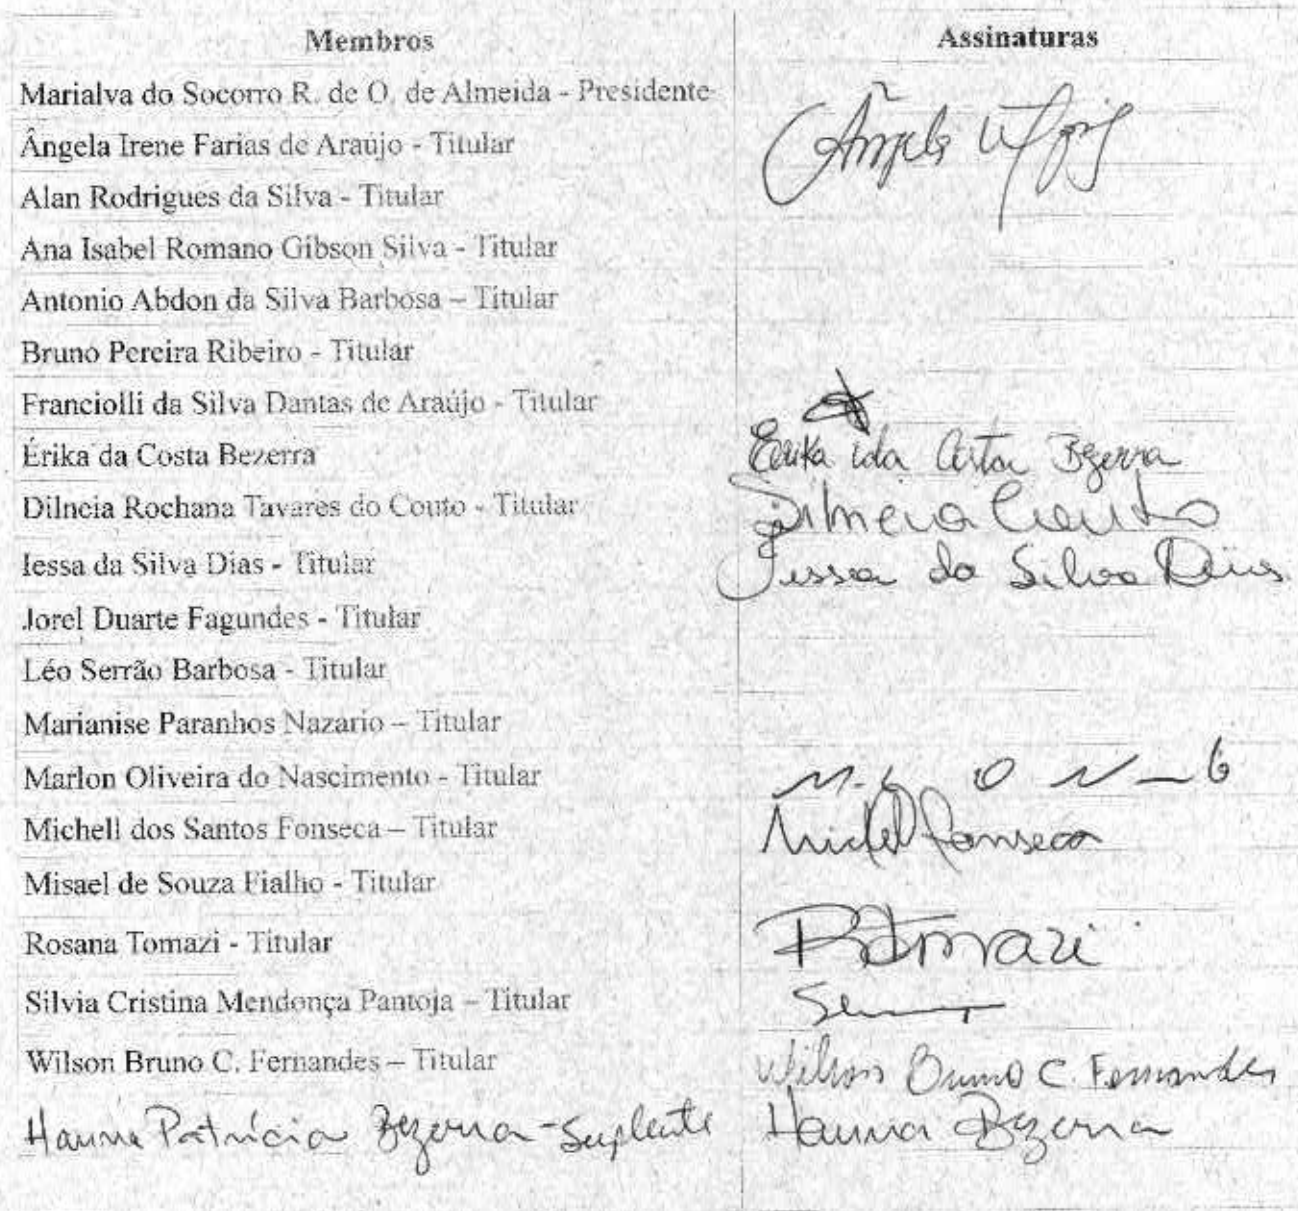 Membros Assinaturas
Marialva do Socorro R. de O. de Almeida - Presidente
Ângela Irene Farias de Araújo - Titular Ângela
Alan Rodrigues da Silva - Titular
Ana Isabel Romano Gibson Silva - Titular
Antonio Abdon da Silva Barbosa – Titular
Bruno Pereira Ribeiro - Titular
Franciolli da Silva Dantas de Araújo - Titular
Érika da Costa Bezerra Érika da Costa Bezerra
Dilneia Rochana Tavares do Couto - Titular Dilneia Couto
Iessa da Silva Dias - Titular Iessa da Silva Dias
Jorel Duarte Fagundes - Titular
Léo Serrão Barbosa - Titular
Marianise Paranhos Nazario – Titular
Marlon Oliveira do Nascimento - Titular
Michell dos Santos Fonseca – Titular Michell Fonseca
Misael de Souza Fialho - Titular
Rosana Tomazi - Titular RTomazi
Silvia Cristina Mendonça Pantoja – Titular
Wilson Bruno C. Fernandes – Titular Wilson Bruno C. Fernandes
Hanna Patrícia Bezerra - Suplente Hanna Bezerra